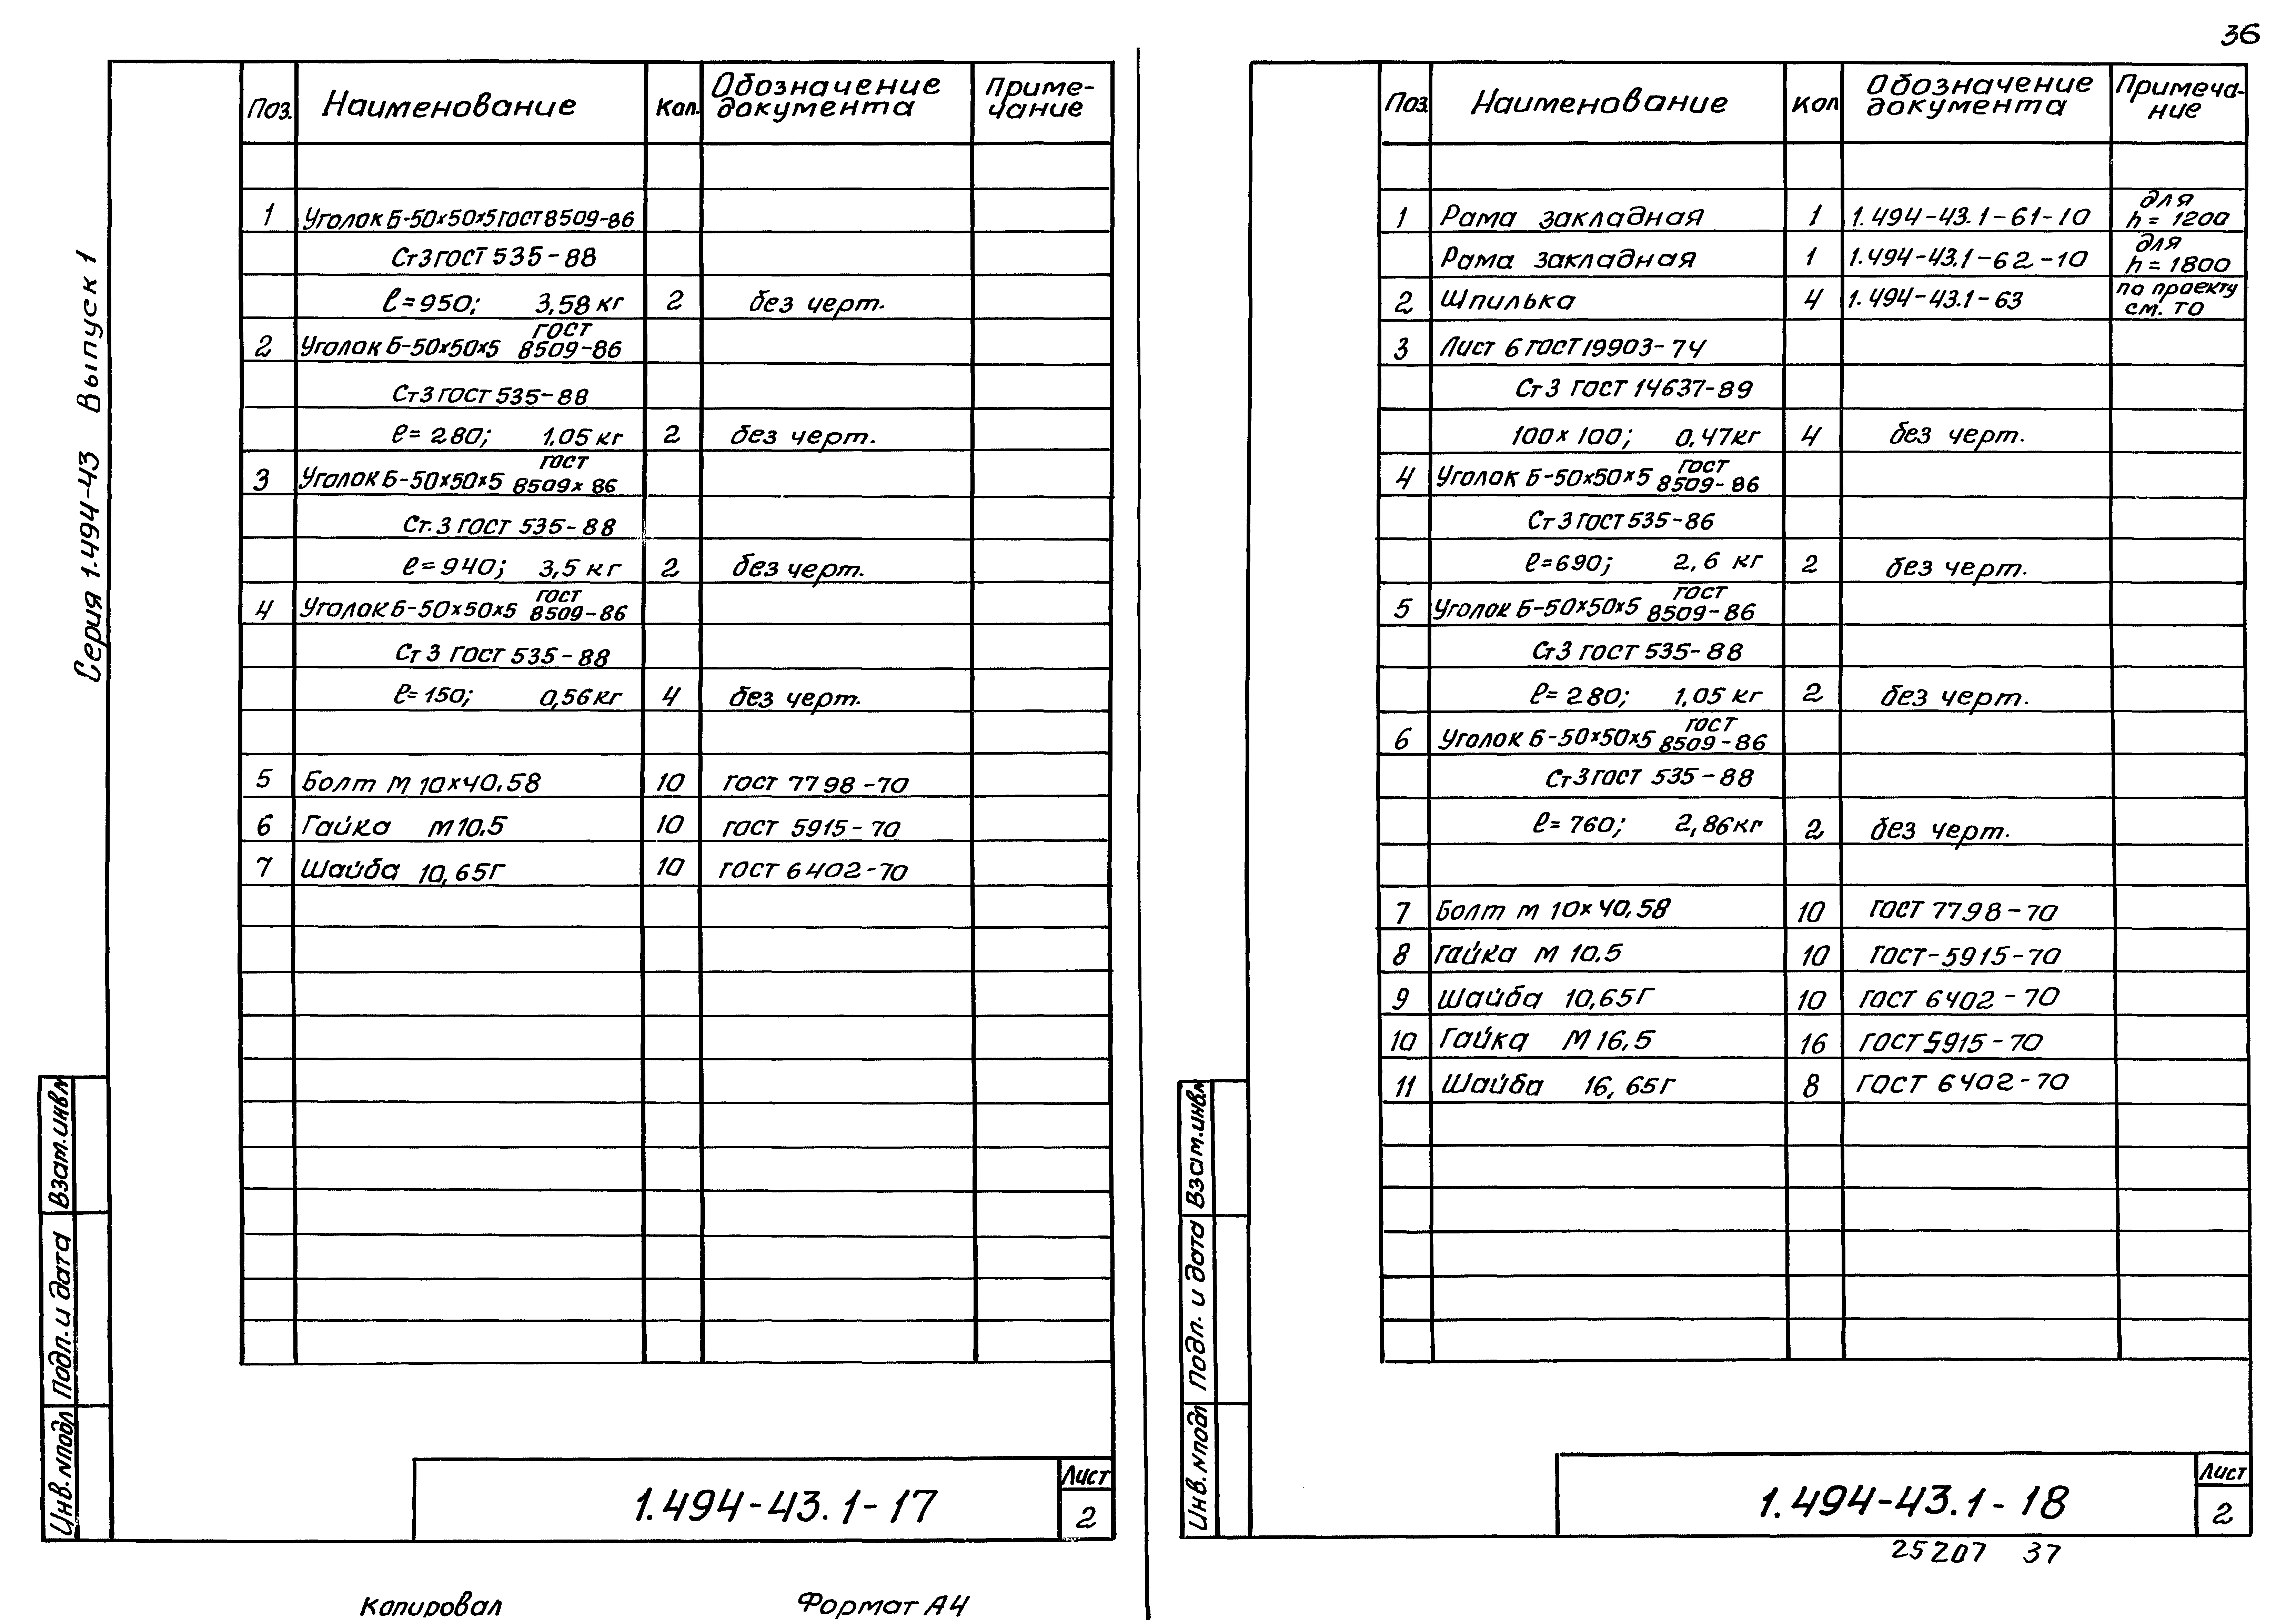 36
Серия 1.494-43 Выпуск 1
Поз. Наименование Кол. Обозначение документа Приме-чание
1 Уголок Б-50×50×5 ГОСТ 8509-86
Ст3 ГОСТ 535-88
ℓ=950; 3,58 кг 2 без черт.
2 Уголок Б-50×50×5 ГОСТ 8509-86
Ст3 ГОСТ 535-88
ℓ=280; 1,05 кг 2 без черт.
3 Уголок Б-50×50×5 ГОСТ 8509×86
Ст.3 ГОСТ 535-88
ℓ=940; 3,5 кг 2 без черт.
4 Уголок Б-50×50×5 ГОСТ 8509-86
Ст3 ГОСТ 535-88
ℓ=150; 0,56 кг 4 без черт.
5 Болт М 10×40.58 10 ГОСТ 7798-70
6 Гайка М10.5 10 ГОСТ 5915-70
7 Шайба 10,65Г 10 ГОСТ 6402-70
Взам.инв.№
Подп. и дата
Инв.№подл
1.494-43.1-17
Лист
2
Копировал Формат А4
Поз. Наименование Кол Обозначение документа Примеча-ние
1 Рама закладная 1 1.494-43.1-61-10 для h=1200
Рама закладная 1 1.494-43.1-62-10 для h=1800
2 Шпилька 4 1.494-43.1-63 по проекту см. ТО
3 Лист 6 ГОСТ 19903-74
Ст3 ГОСТ 14637-89
100×100; 0,47кг 4 без черт.
4 Уголок Б-50×50×5 ГОСТ 8509-86
Ст3 ГОСТ 535-86
ℓ=690; 2,6 кг 2 без черт.
5 Уголок Б-50×50×5 ГОСТ 8509-86
Ст3 ГОСТ 535-88
ℓ=280; 1,05 кг 2 без черт.
6 Уголок Б-50×50×5 ГОСТ 8509-86
Ст3 ГОСТ 535-88
ℓ=760; 2,86кг 2 без черт.
7 Болт М 10×40,58 10 ГОСТ 7798-70
8 Гайка М 10.5 10 ГОСТ-5915-70
9 Шайба 10,65Г 10 ГОСТ 6402-70
10 Гайка М 16,5 16 ГОСТ 5915-70
11 Шайба 16,65Г 8 ГОСТ 6402-70
Взам.инв.№
Подп. и дата
Инв.№подл
1.494-43.1-18
Лист
2
25207 37